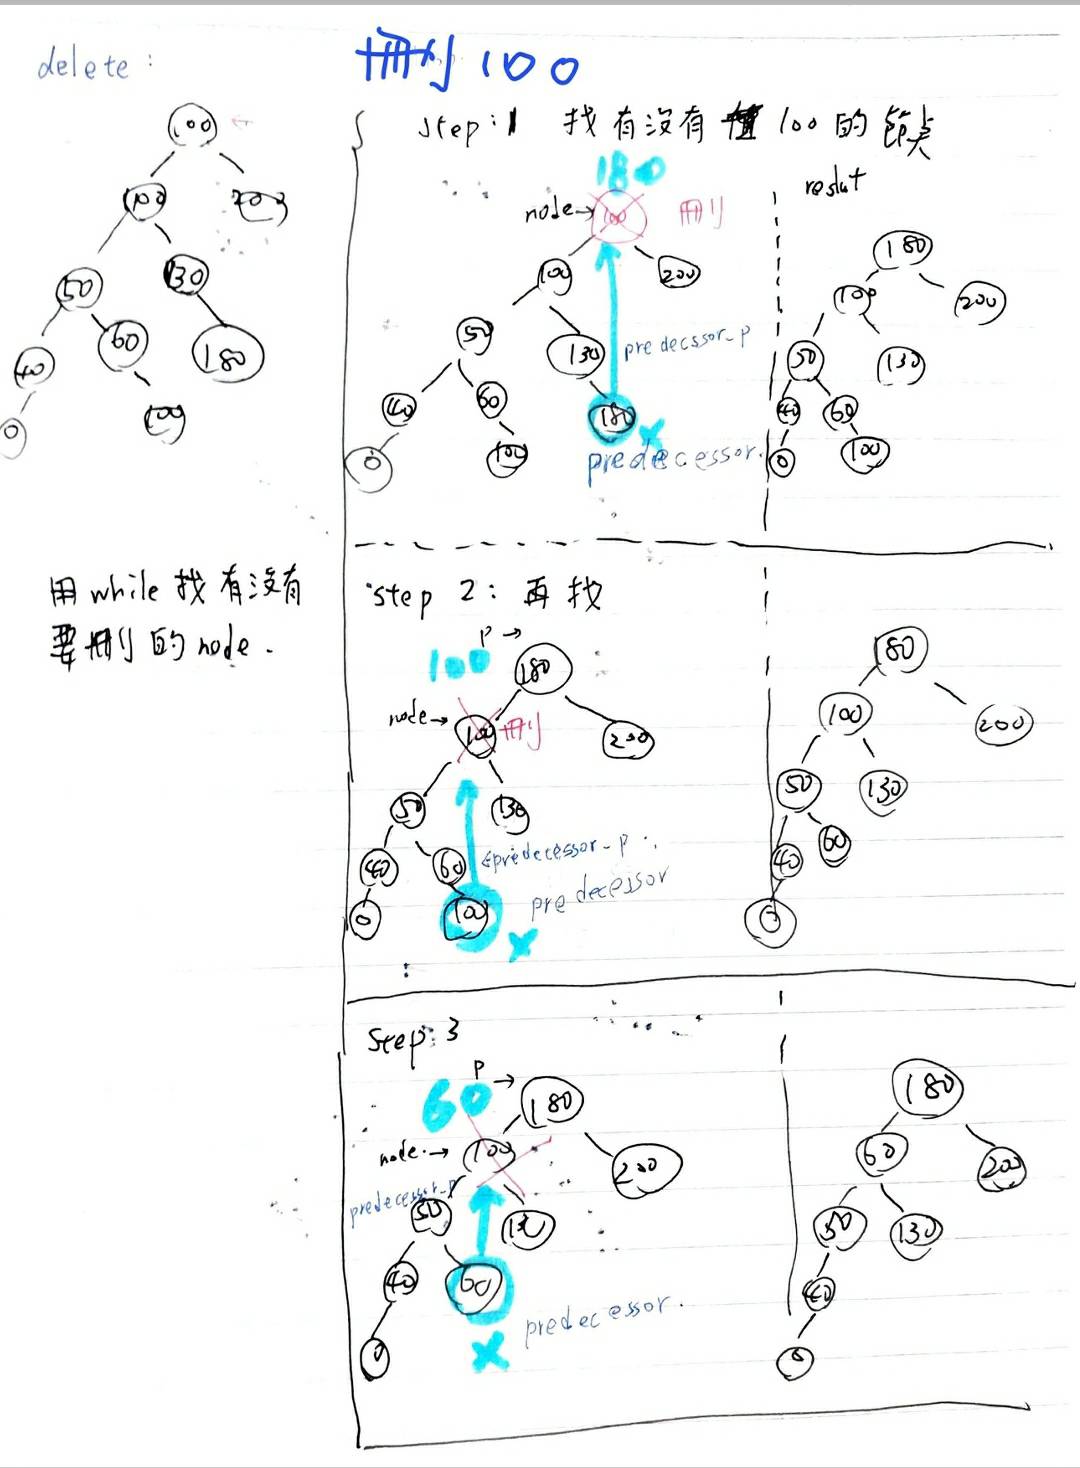 delete :
刪 100
100
100
200
50
130
40
60
180
0
100
用 while 找有沒有
要刪的 node .
step: 1 找有沒有 100 的節點
180
node→
100
刪
reslut
100
200
50
130
predecssor_p
40
60
180
0
100
predecessor.
180
100
200
50
130
40
60
0
100
step 2 : 再找
P →
100
180
node→
100
刪
200
50
130
40
60
predecessor_p
0
100
predecessor
180
100
200
50
130
40
60
0
Step: 3
P →
60
180
node→
100
200
predecessor_p
50
40
60
0
predecessor.
180
60
200
50
130
40
0